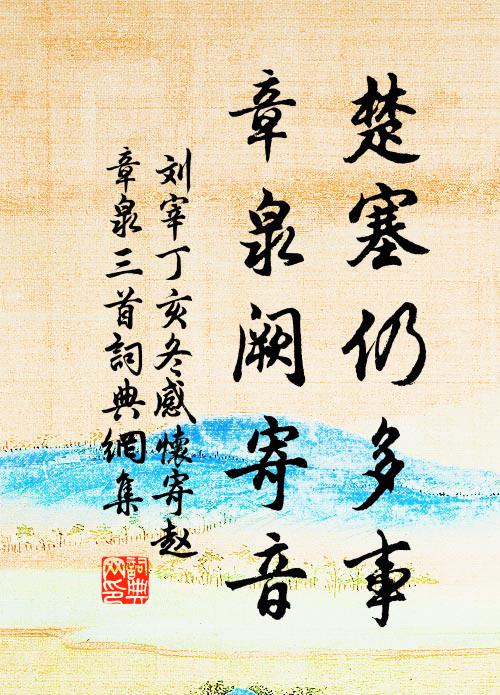 楚塞仍多事
章泉阙寄音
刘宰丁亥冬感懷寄赵
章泉三首詞典網集
詞典
网印